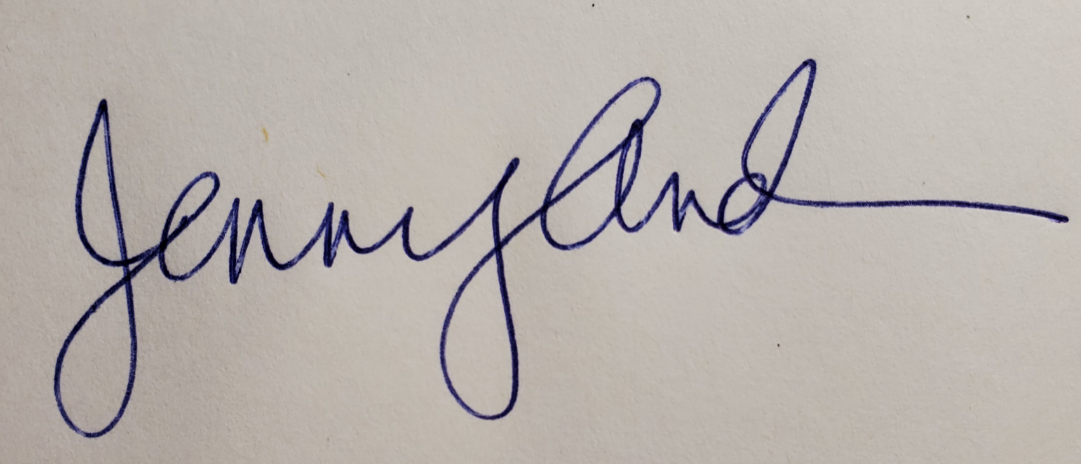 Jenny And